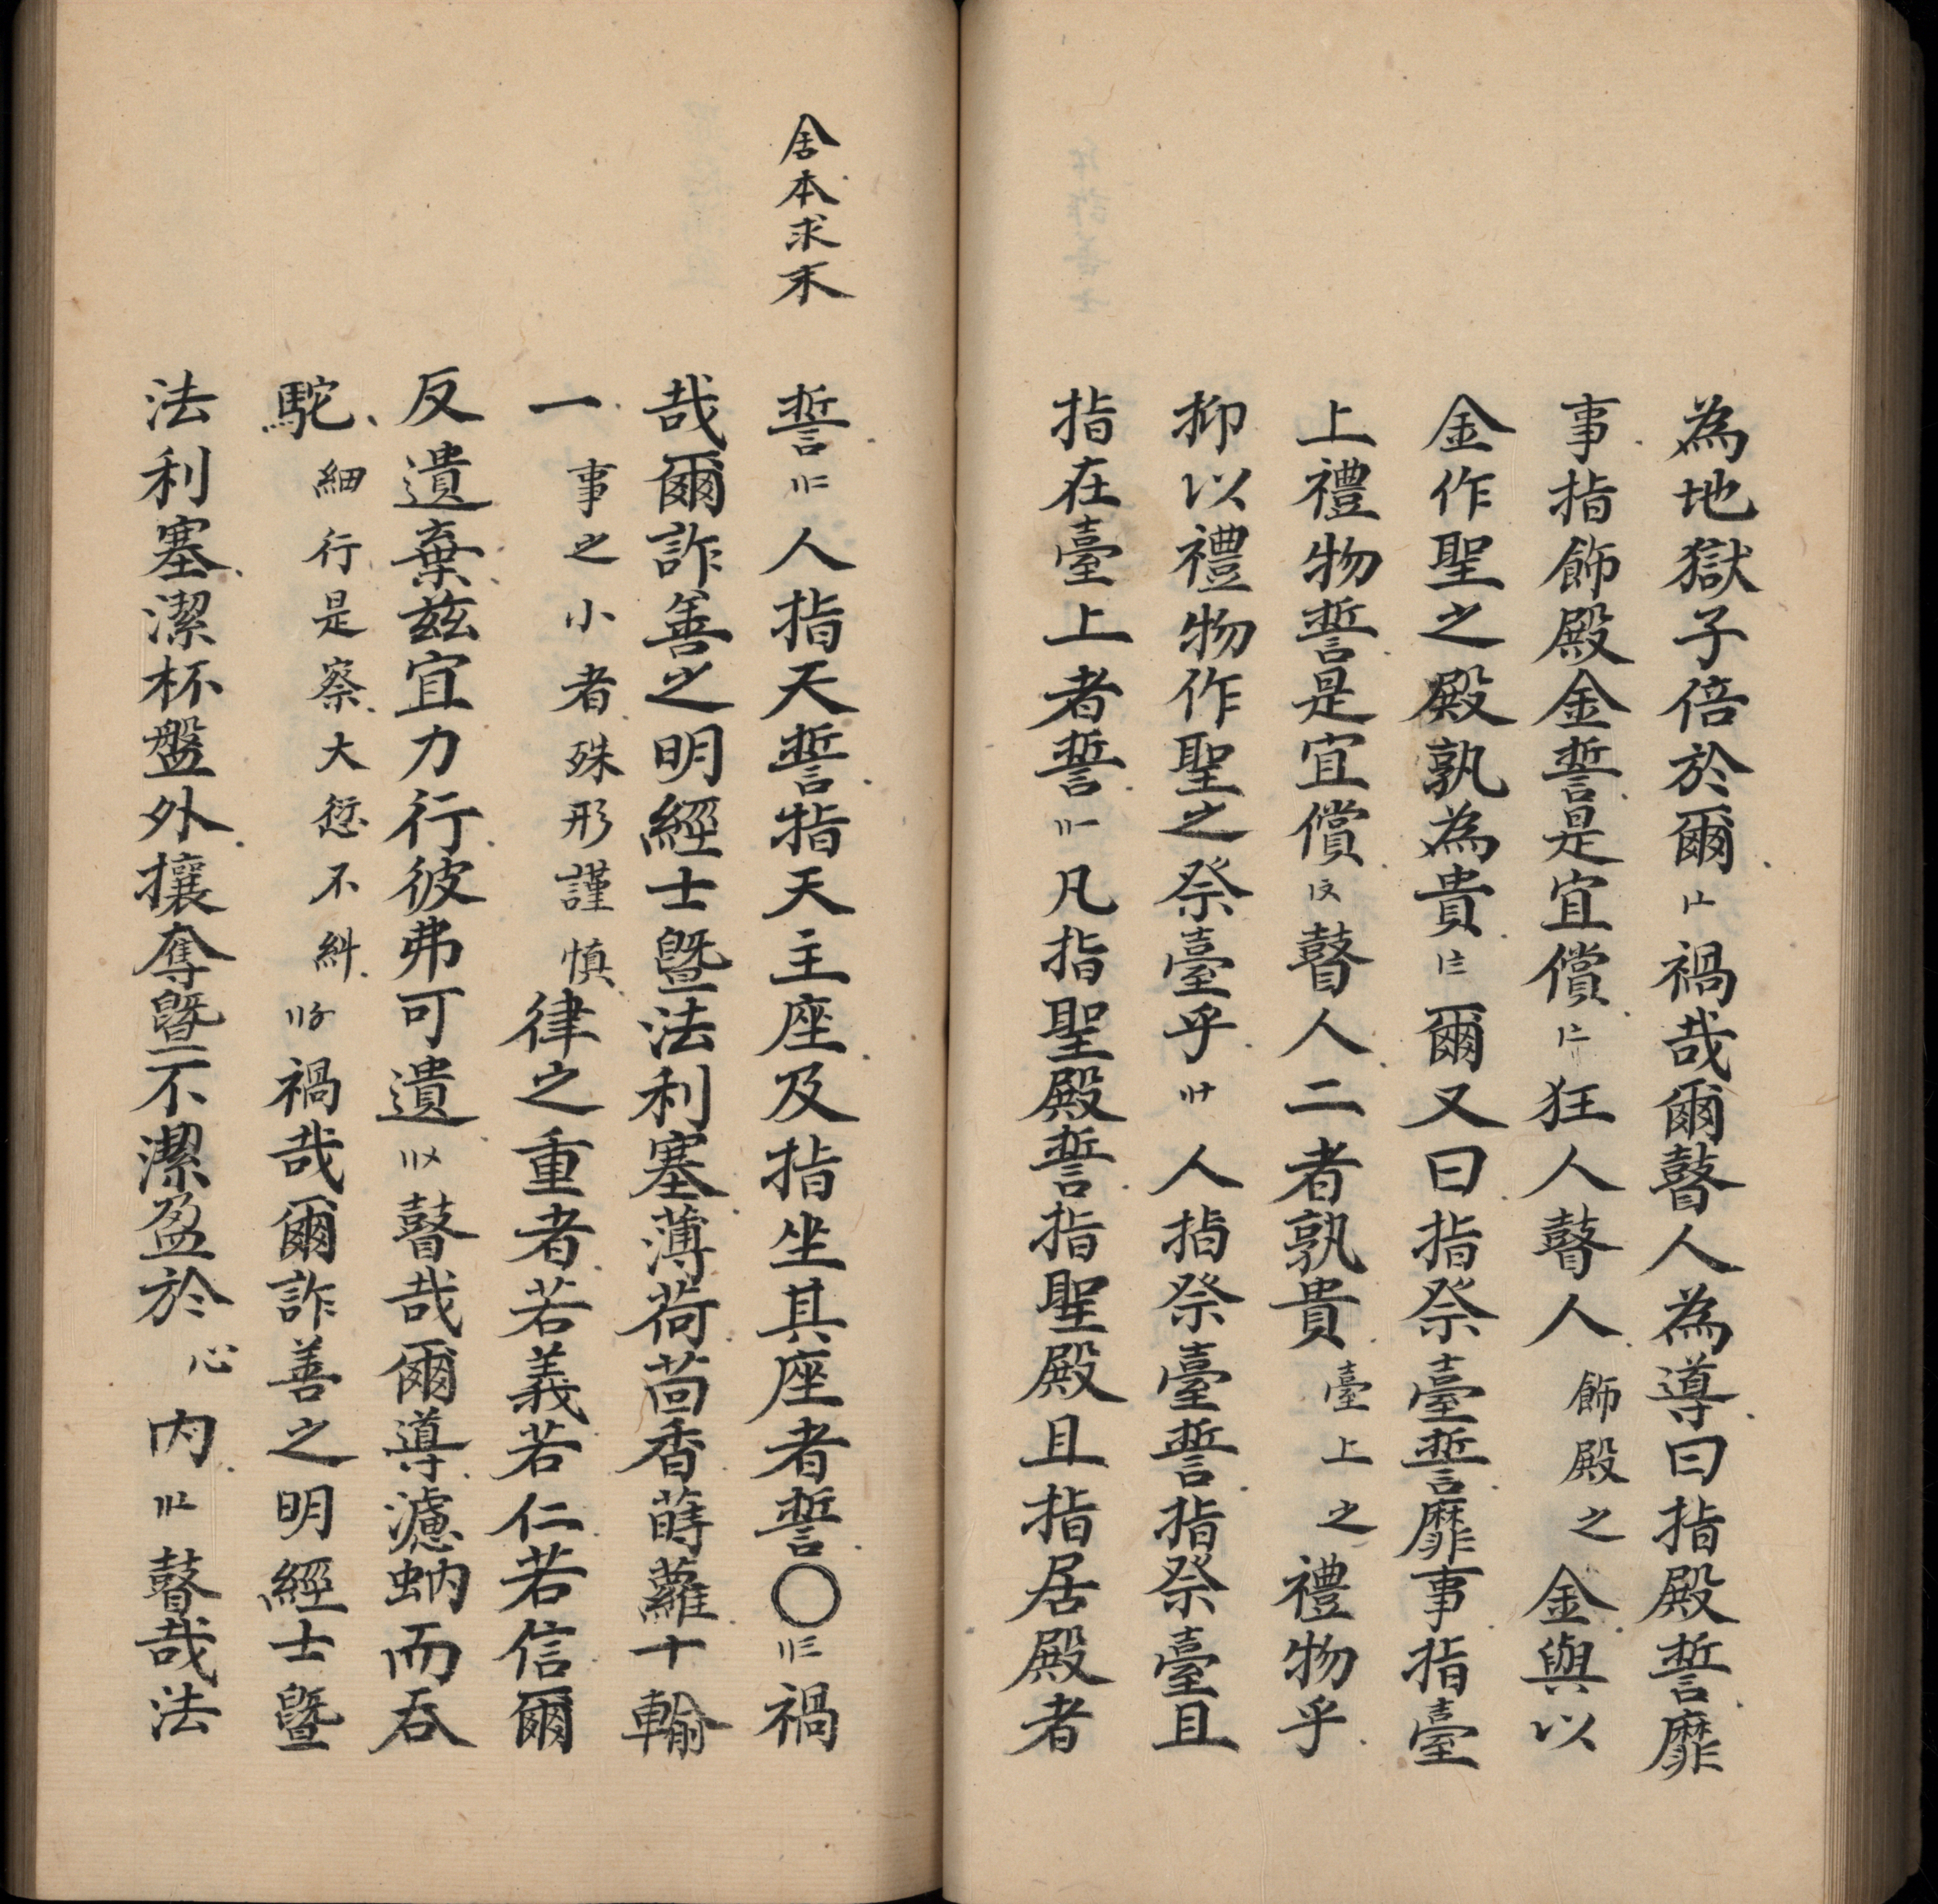 為地獄子倍於爾〡〦禍哉爾瞽人為導曰指殿誓靡
事指飾殿金誓是宜償〡〧狂人瞽人飾殿之金與以
金作聖之殿孰為貴〡〨爾又曰指祭臺誓靡事指臺
上禮物誓是宜償〡〩瞽人二者孰貴臺上之禮物乎
抑以禮物作聖之祭臺乎〢十人指祭臺誓指祭臺且
指在臺上者誓〢一凡指聖殿誓指聖殿且指居殿者
舍本求末
誓〢二人指天誓指天主座及指坐其座者誓〇〢三禍
哉爾詐善之明經士暨法利塞薄荷茴香蒔蘿十輸
一事之小者殊形謹慎律之重者若義若仁若信爾
反遺棄茲宜力行彼弗可遺〢〤瞽哉爾導濾蚋而吞
駝細行是察大愆不糾〢〥禍哉爾詐善之明經士暨
法利塞潔杯盤外攘奪暨不潔盈於心內〢〦瞽哉法